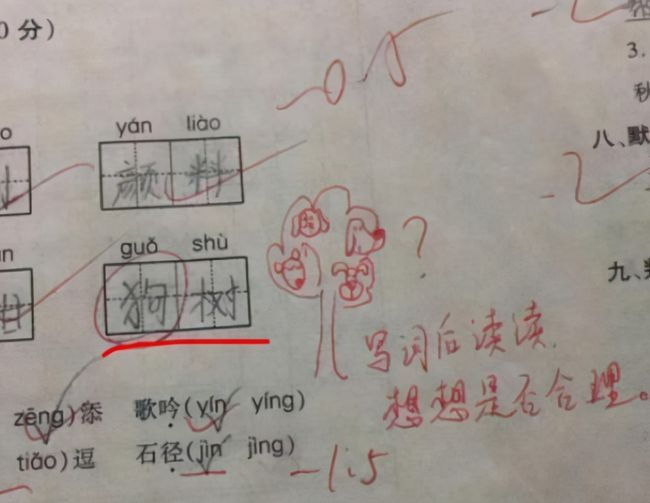 0 分)
-0.5
3.
o
yán liào
颜料
秋
八、默
guǒ shù
狗树
?
九、
写词后读读,
想想是否合理。
zēng)添 歌吟(yín yíng)
tiǎo)逗 石径(jìn jìng)
-1.5